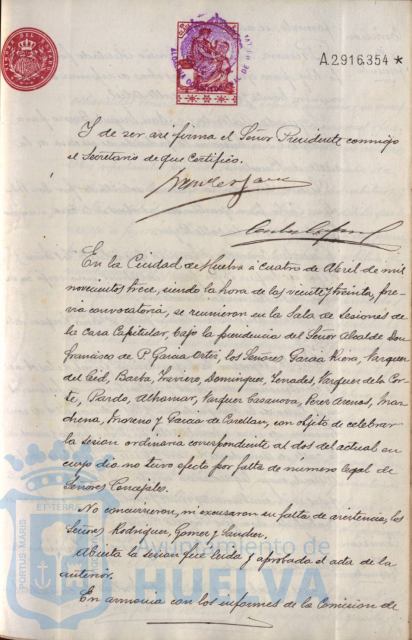 A.2.916.354 *
Y de ser así firma el Señor Presidente conmigo
el Secretario de que certifico.
En la Ciudad de Huelva á cuatro de Abril de mil
novecientos trece, siendo la hora de las veinte y treinta, pre-
via convocatoria, se reunieron en la Sala de Sesiones de
la Casa Capitular, bajo la presidencia del Señor Alcalde Don
Francisco de P. García Ortiz, los Señores García Riera, Vazquez
del Cid, Barba, Traviero, Dominguez, Tenades, Vazquez de la Cor-
te, Pardo, Alhomar, Vazquez Casanova, Perez Arenos, Mar-
chena, Moreno y Garcia de Castellar, con objeto de celebrar
la sesion ordinaria correspondiente al dos del actual en
cuyo dia no tuvo efecto por falta de número legal de
Señores Concejales.
No concurrieron, ni excusaron su falta de asistencia, los
Señores Rodriguez, Gomez y Sander.
Abierta la sesion fué leida y aprobada el acta de la
anterior.
En armonia con los informes de la Comision de
ET TERRAE
PORTUS MARIS
Ayuntamiento de
HUELVA